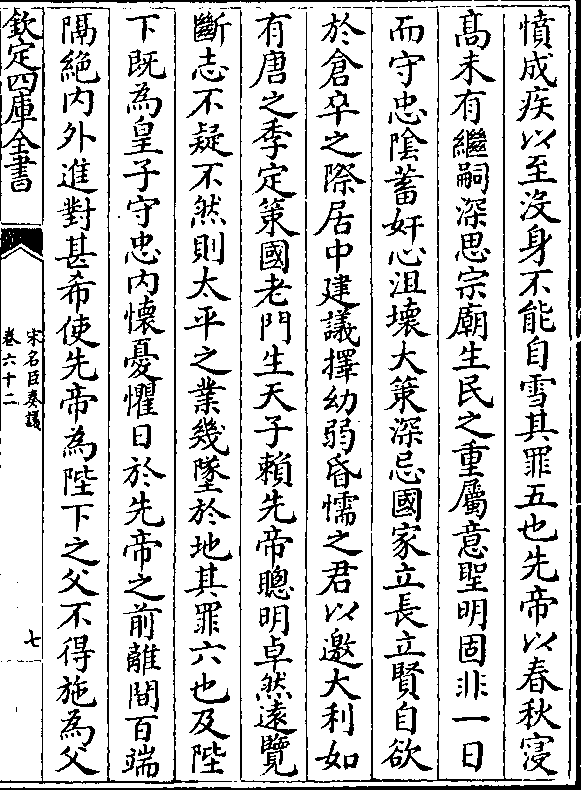 憤成疾以至沒身不能自雪其罪五也先帝以春秋寖
髙未有繼嗣深思宗廟生民之重屬意聖明固非一日
而守忠陰蓄奸心沮壞大策深忌國家立長立賢自欲
於倉卒之際居中建議擇幼弱昏懦之君以邀大利如
有唐之季定策國老門生天子賴先帝聰明卓然逺覽
斷志不疑不然則太平之業幾墜於地其罪六也及陛
下既為皇子守忠内懐憂懼日於先帝之前離間百端
隔絶内外進對甚希使先帝為陛下之父不得施為父
欽定四庫全書
宋名臣奏議
卷六十二
七